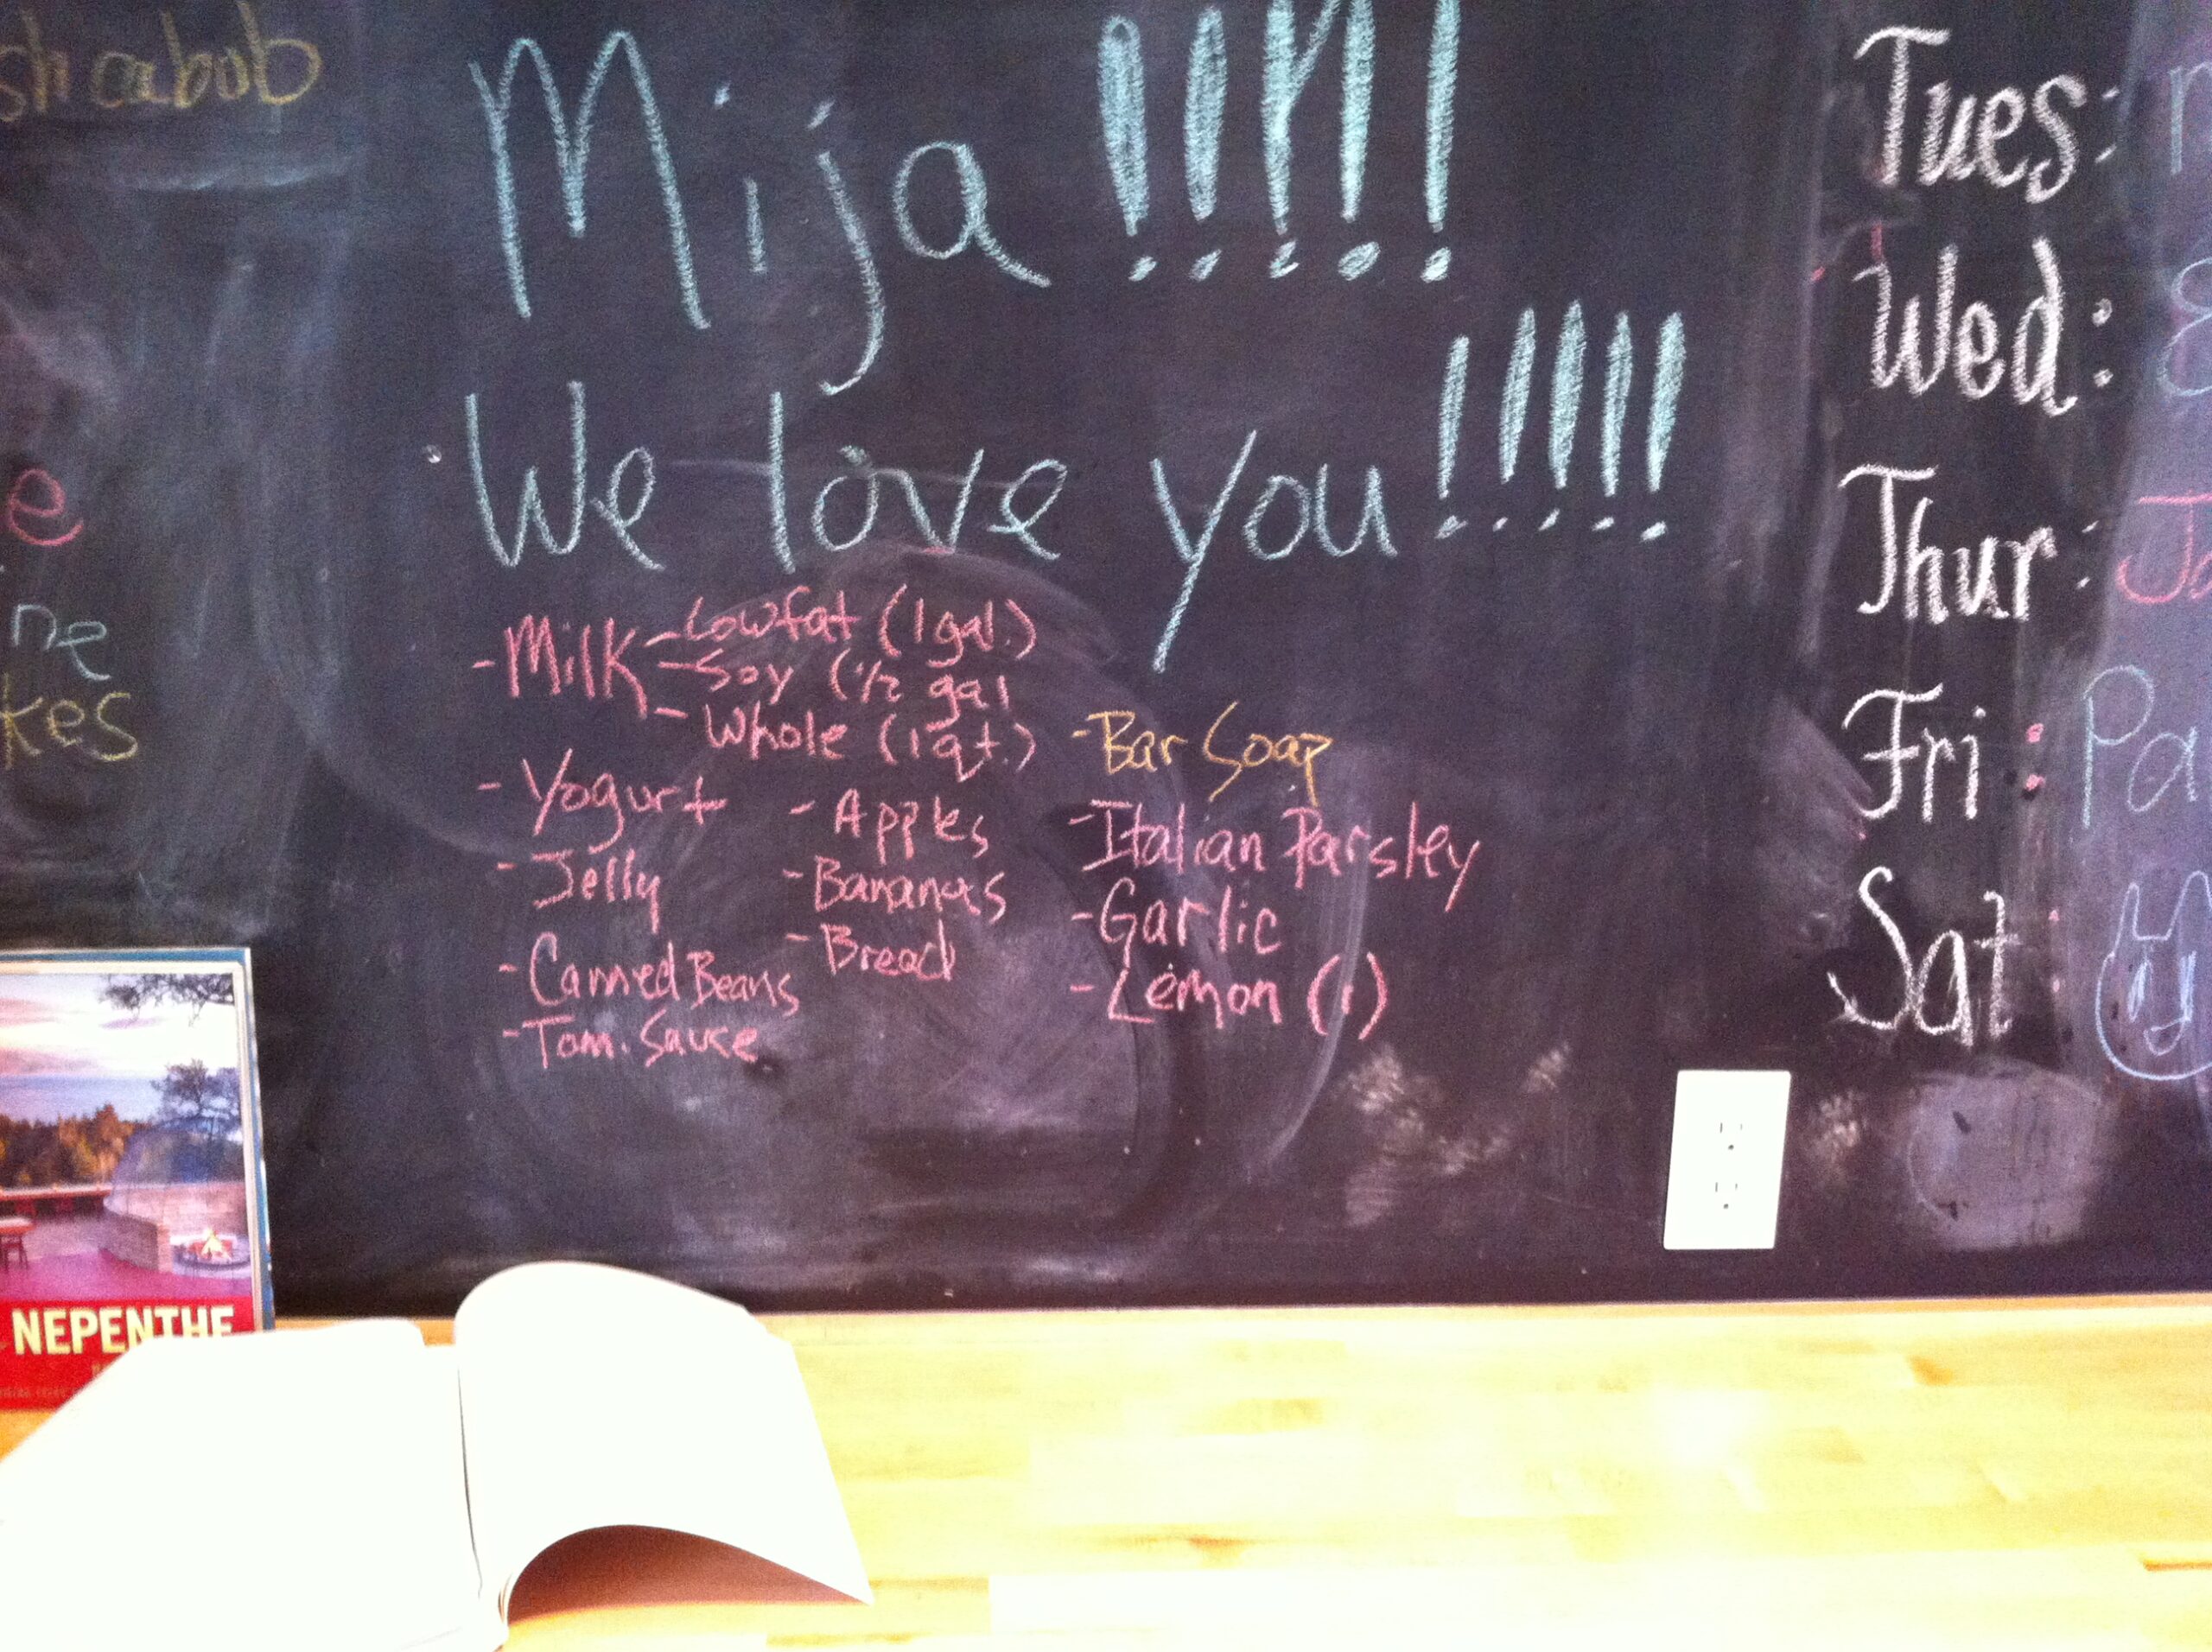 Mija !!!!!
We love you !!!!!
- Milk - Lowfat (1 gal.)
- Soy (1/2 gal
- Whole (1 qt.)
- Yogurt
- Jelly
- Canned Beans
- Tom. Sauce
- Apples
- Bananas
- Bread
- Bar Soap
- Italian Parsley
- Garlic
- Lemon (1)
Tues:
Wed:
Thur:
Fri: Pa
Sat:
e
ne
kes
NEPENTHE